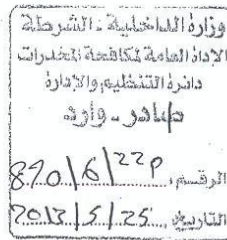 وزارة الداخلية - الشرطة
الإدارة العامة لمكافحة المخدرات
دائرة التنظيم والإدارة
صادر - وارد
الرقم
التاريخ 2013/5/25